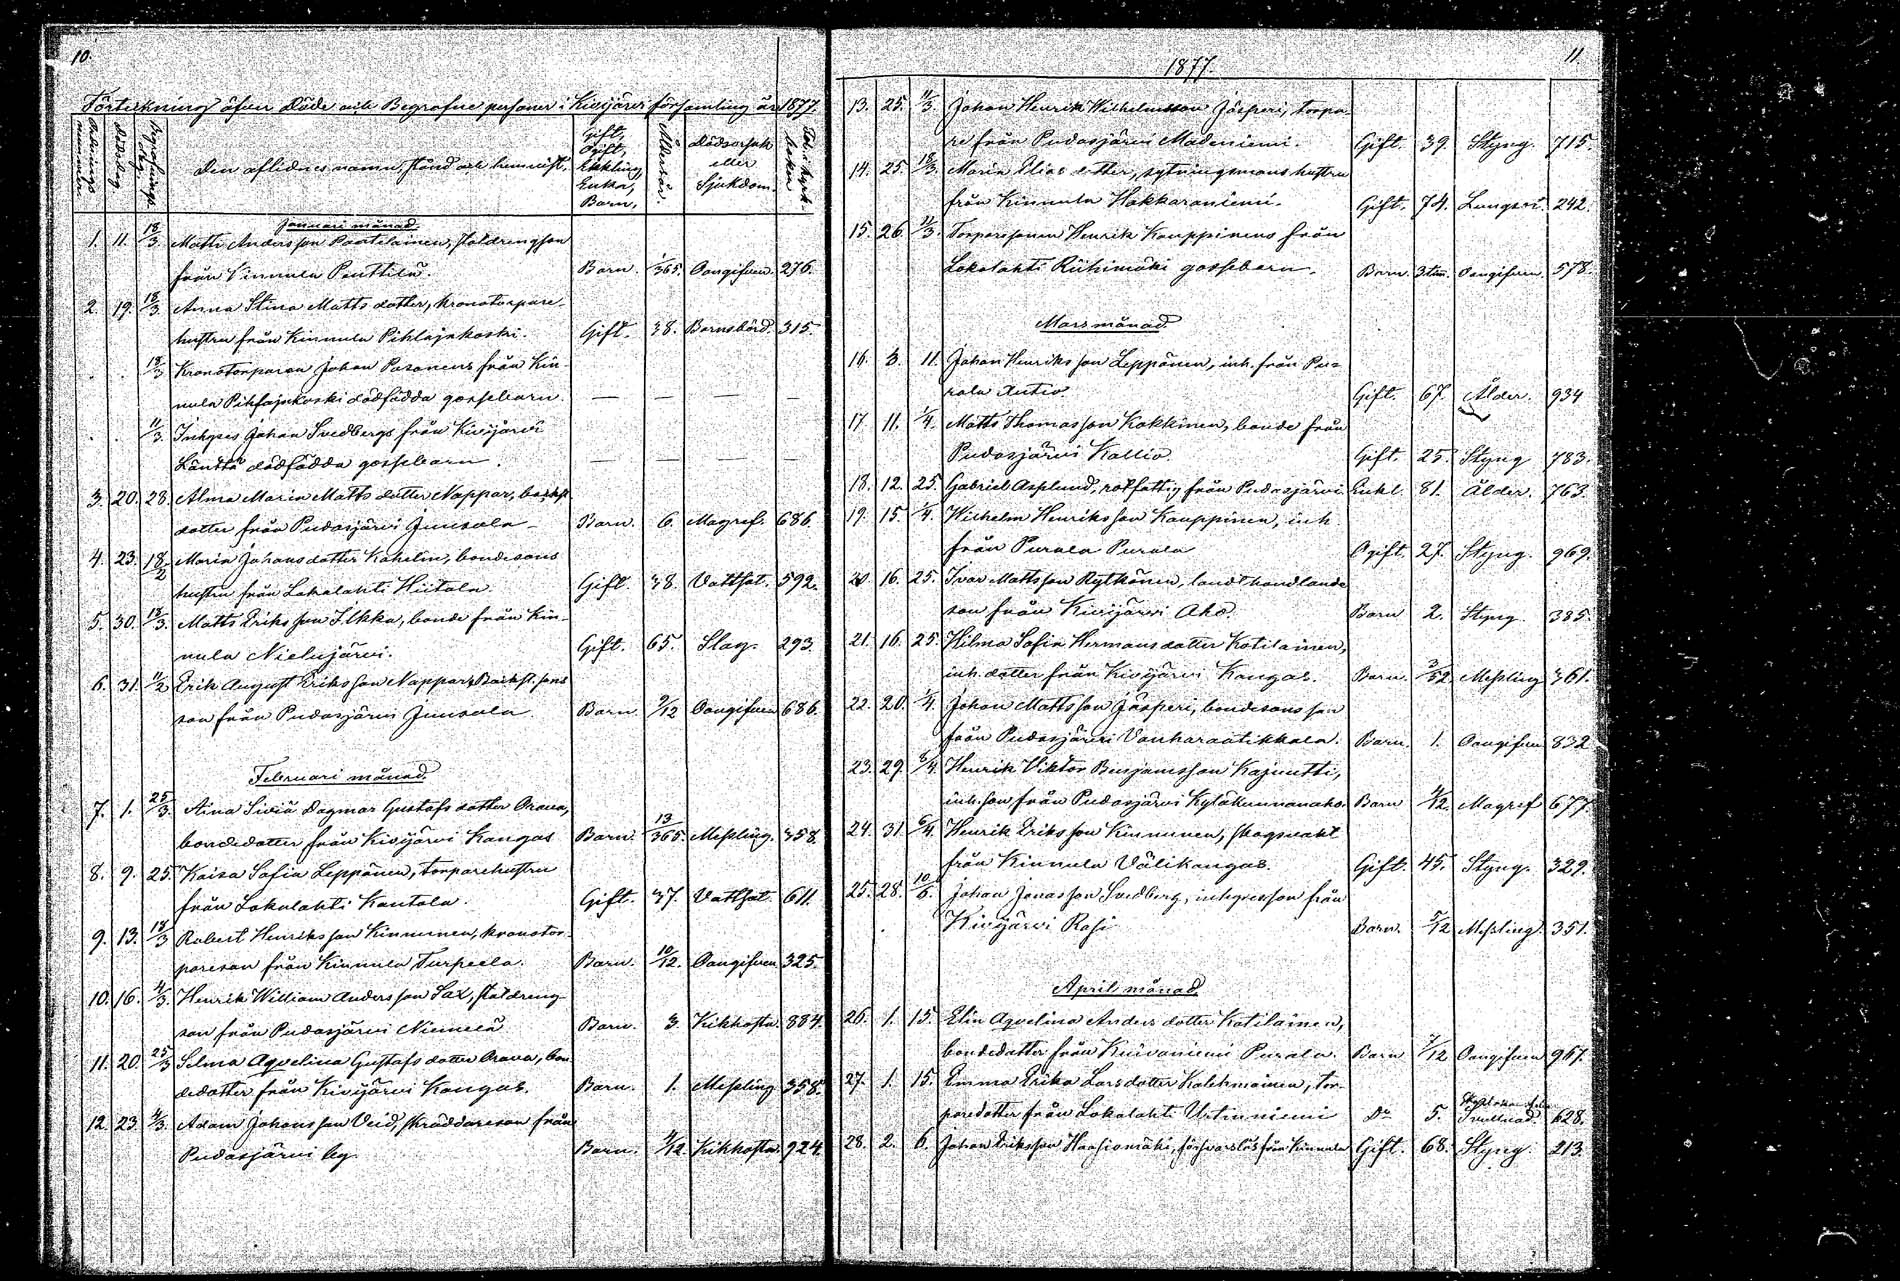 10.
Förteckning öfver Döde och Begrafne personer i Kivijärvi församling år 1877.
Ordnings nummer. Dödsdag. Begrafnings dag. Den aflidnes namn, stånd och hemvist. Gift, Ogift, Enkling, Enka, Barn. Ålder år. Dödsorsak eller Sjukdom. Fol. i kyrk-boken.
Januari månad.
1. 11. 18/3 Matts Andersson Pänttiläinen, stalldrengson
från Kinnula Penttilä. Barn. 1/365. Oangifven. 276.
2. 19. 18/3 Anna Stina Matts dotter, kronotorpare-
hustru från Kinnula Pihlajakoski. Gift. 38. Barnsbörd. 315.
18/3 Kronotorparen Johan Pasanens från Kin-
nula Pihlajakoski dödfödda gossebarn. — — — —
11/3 Inhyses Johan Svedbergs från Kivijärvi
Länttä dödfödda gossebarn. — — — —
3. 20. 28. Alma Maria Matts dotter Nappar, backst.
dotter från Pudasjärvi Junsala Barn. 6. Magref. 686.
4. 23. 18/2 Maria Johansdotter Kahelin, bondesons
hustru från Lokalahti Hiitola. Gift. 38. Vattsot. 592.
5. 30. 18/3. Matts Eriksson Ilkka, bonde från Kin-
nula Nielujärvi. Gift. 65. Slag. 293.
6. 31. 11/2 Erik August Eriksson Nappar, Backst. sons
son från Pudasjärvi Junsala. Barn. 9/12 Oangifven 686.
Februari månad.
7. 1. 25/3. Aina Siviä Dagmar Gustafs dotter Orava,
bondedotter från Kivijärvi Kangas Barn. 13/365. Messling. 358.
8. 9. 25. Kaisa Sofia Leppänen, torparehustru
från Lokalahti Kantola. Gift. 37. Vattsot. 611.
9. 13. 18/3 Robert Henriksson Kinnunen, kronotor-
pareson från Kinnula Turpeela. Barn. 10/12. Oangifven. 325.
10. 16. 4/3. Henrik William Andersson Sax, stalldreng-
son från Pudasjärvi Niemelä. Barn. 3. Kikhosta. 884.
11. 20. 25/3 Selma Aqvelina Gustafs dotter Orava, bon-
dedotter från Kivijärvi Kangas. Barn. 1. Messling 358.
12. 23. 4/3. Adam Johansson Veid, skräddareson från
Pudasjärvi by. Barn. 4/12. Kikhosta. 924.
1877.
11
13. 25. 11/3. Johan Henrik Wilhelmsson Jäsperi, torpa-
re från Pudasjärvi Mäderniemi. Gift. 39. Styng. 715.
14. 25. 18/3. Maria Elias dotter, sytningsmans hustru
från Kinnula Hakkaraniemi. Gift. 74. Lungsot. 242.
15. 26. 11/3. Torparsonen Henrik Kauppinens från
Lokalahti Riihimäki gossebarn. Barn. 3 tim. Oangifven. 578.
Mars månad.
16. 3. 11. Johan Henriksson Leppänen, inh. från Pu-
rala Autio Gift. 67. Ålder. 934
17 11. 1/4. Matts Thomasson Kakkinen, bonde från
Pudasjärvi Kallio. Gift. 25. Styng 783.
18. 12. 25 Gabriel Asplund, rotfattig från Pudasjärvi. Enkl. 81. Ålder. 763.
19. 15. 1/4. Wilhelm Henriksson Kauppinen, inh.
från Purala Purala Ogift. 27. Styng. 969.
20 16. 25. Ivar Mattsson Rytkönen, landthandlande
son från Kivijärvi Aho. Barn 2. Styng. 385.
21. 16. 25. Hilma Sofia Hermansdotter Kotilainen,
inh. dotter från Kivijärvi Kangas. Barn. 3/52. Messling 361.
22. 20. 1/4. Johan Mattsson Jäsperi, bondesons son
från Pudasjärvi Vanharaatikkala. Barn. 1. Oangifven 832
23. 29. 3/4. Henrik Viktor Benjamsson Kajnutti,
inh. son från Pudasjärvi Kyläkunnanaho. Barn 4/12. Magref 677.
24. 31. 6/4. Henrik Eriksson Kinnunen, skogsvakt
från Kinnula Välikangas. Gift. 45. Styng. 329.
25. 28. 10/6. Johan Jonasson Svedberg, inhysesson från
Kivijärvi Rasi Barn. 5/12 Messling. 351.
April månad.
26. 1. 15. Elin Aqvelina Anders dotter Kotilainen,
bondedotter från Kuivaniemi Purala. Barn 7/12 Oangifven 967.
27. 1. 15. Emma Erika Larsdotter Kalehmainen, tor-
paredotter från Lokalahti Urtinniemi Do 5. Svullnad. 628.
28. 2. 6. Johan Eriksson Haasiomäki, försvarslös från Kinnula Gift. 68. Styng. 213.